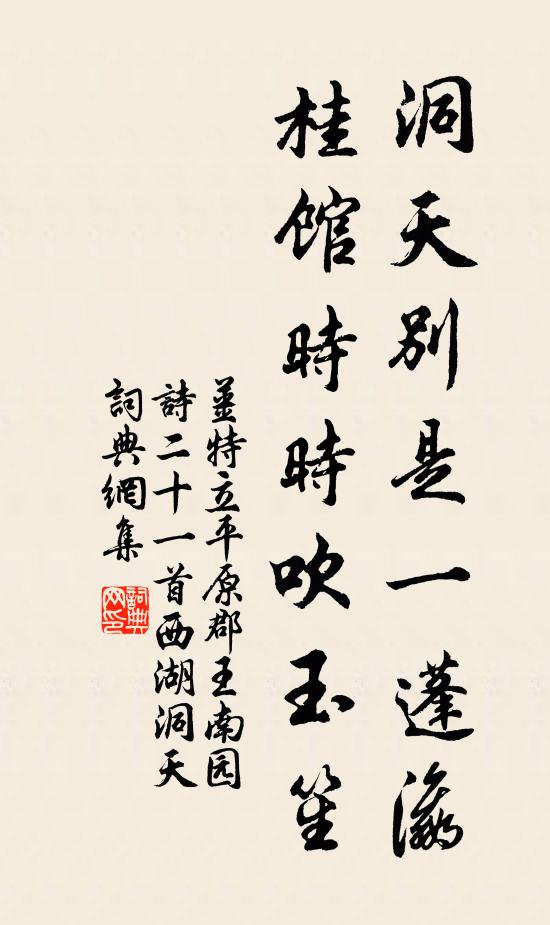 洞天别是一蓬瀛
桂馆時時吹玉笙
姜特立平原郡王南园
詩二十一首西湖洞天
詞典網集
詞典
网印